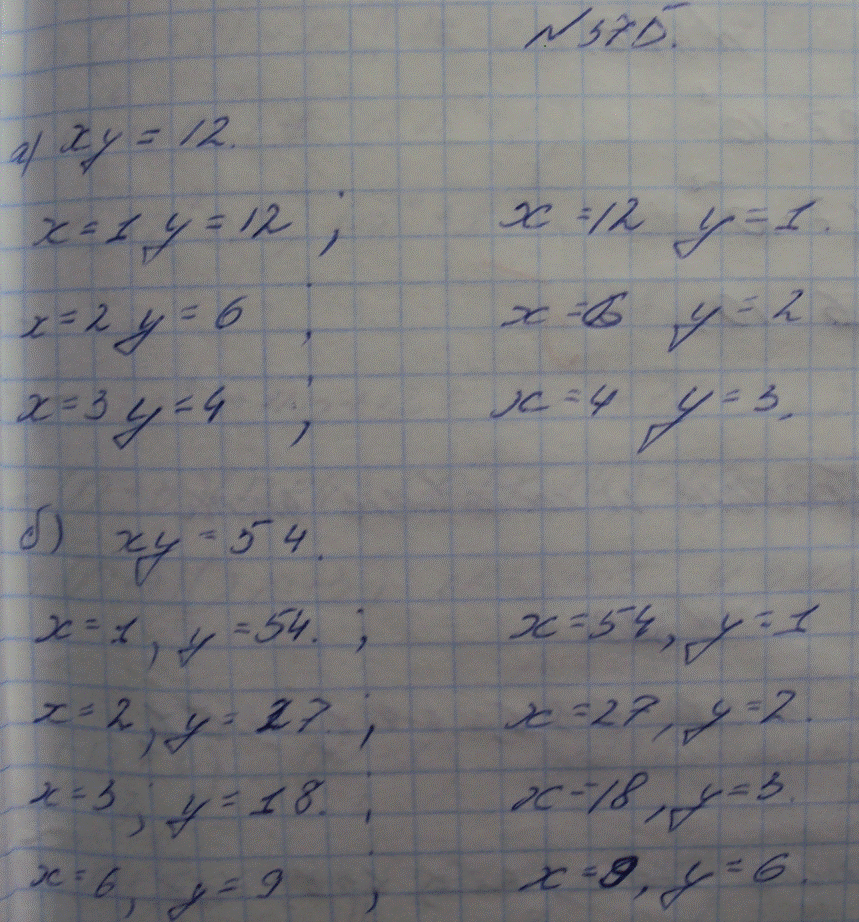 №375.
а) xy = 12.
x = 1 y = 12 ; x = 12 y = 1.
x = 2 y = 6 ; x = 6 y = 2
x = 3 y = 4 ; x = 4 y = 3.
б) xy = 54.
x = 1, y = 54. ; x = 54, y = 1
x = 2, y = 27. ; x = 27, y = 2.
x = 3, y = 18. ; x = 18, y = 3.
x = 6, y = 9 ; x = 9, y = 6.